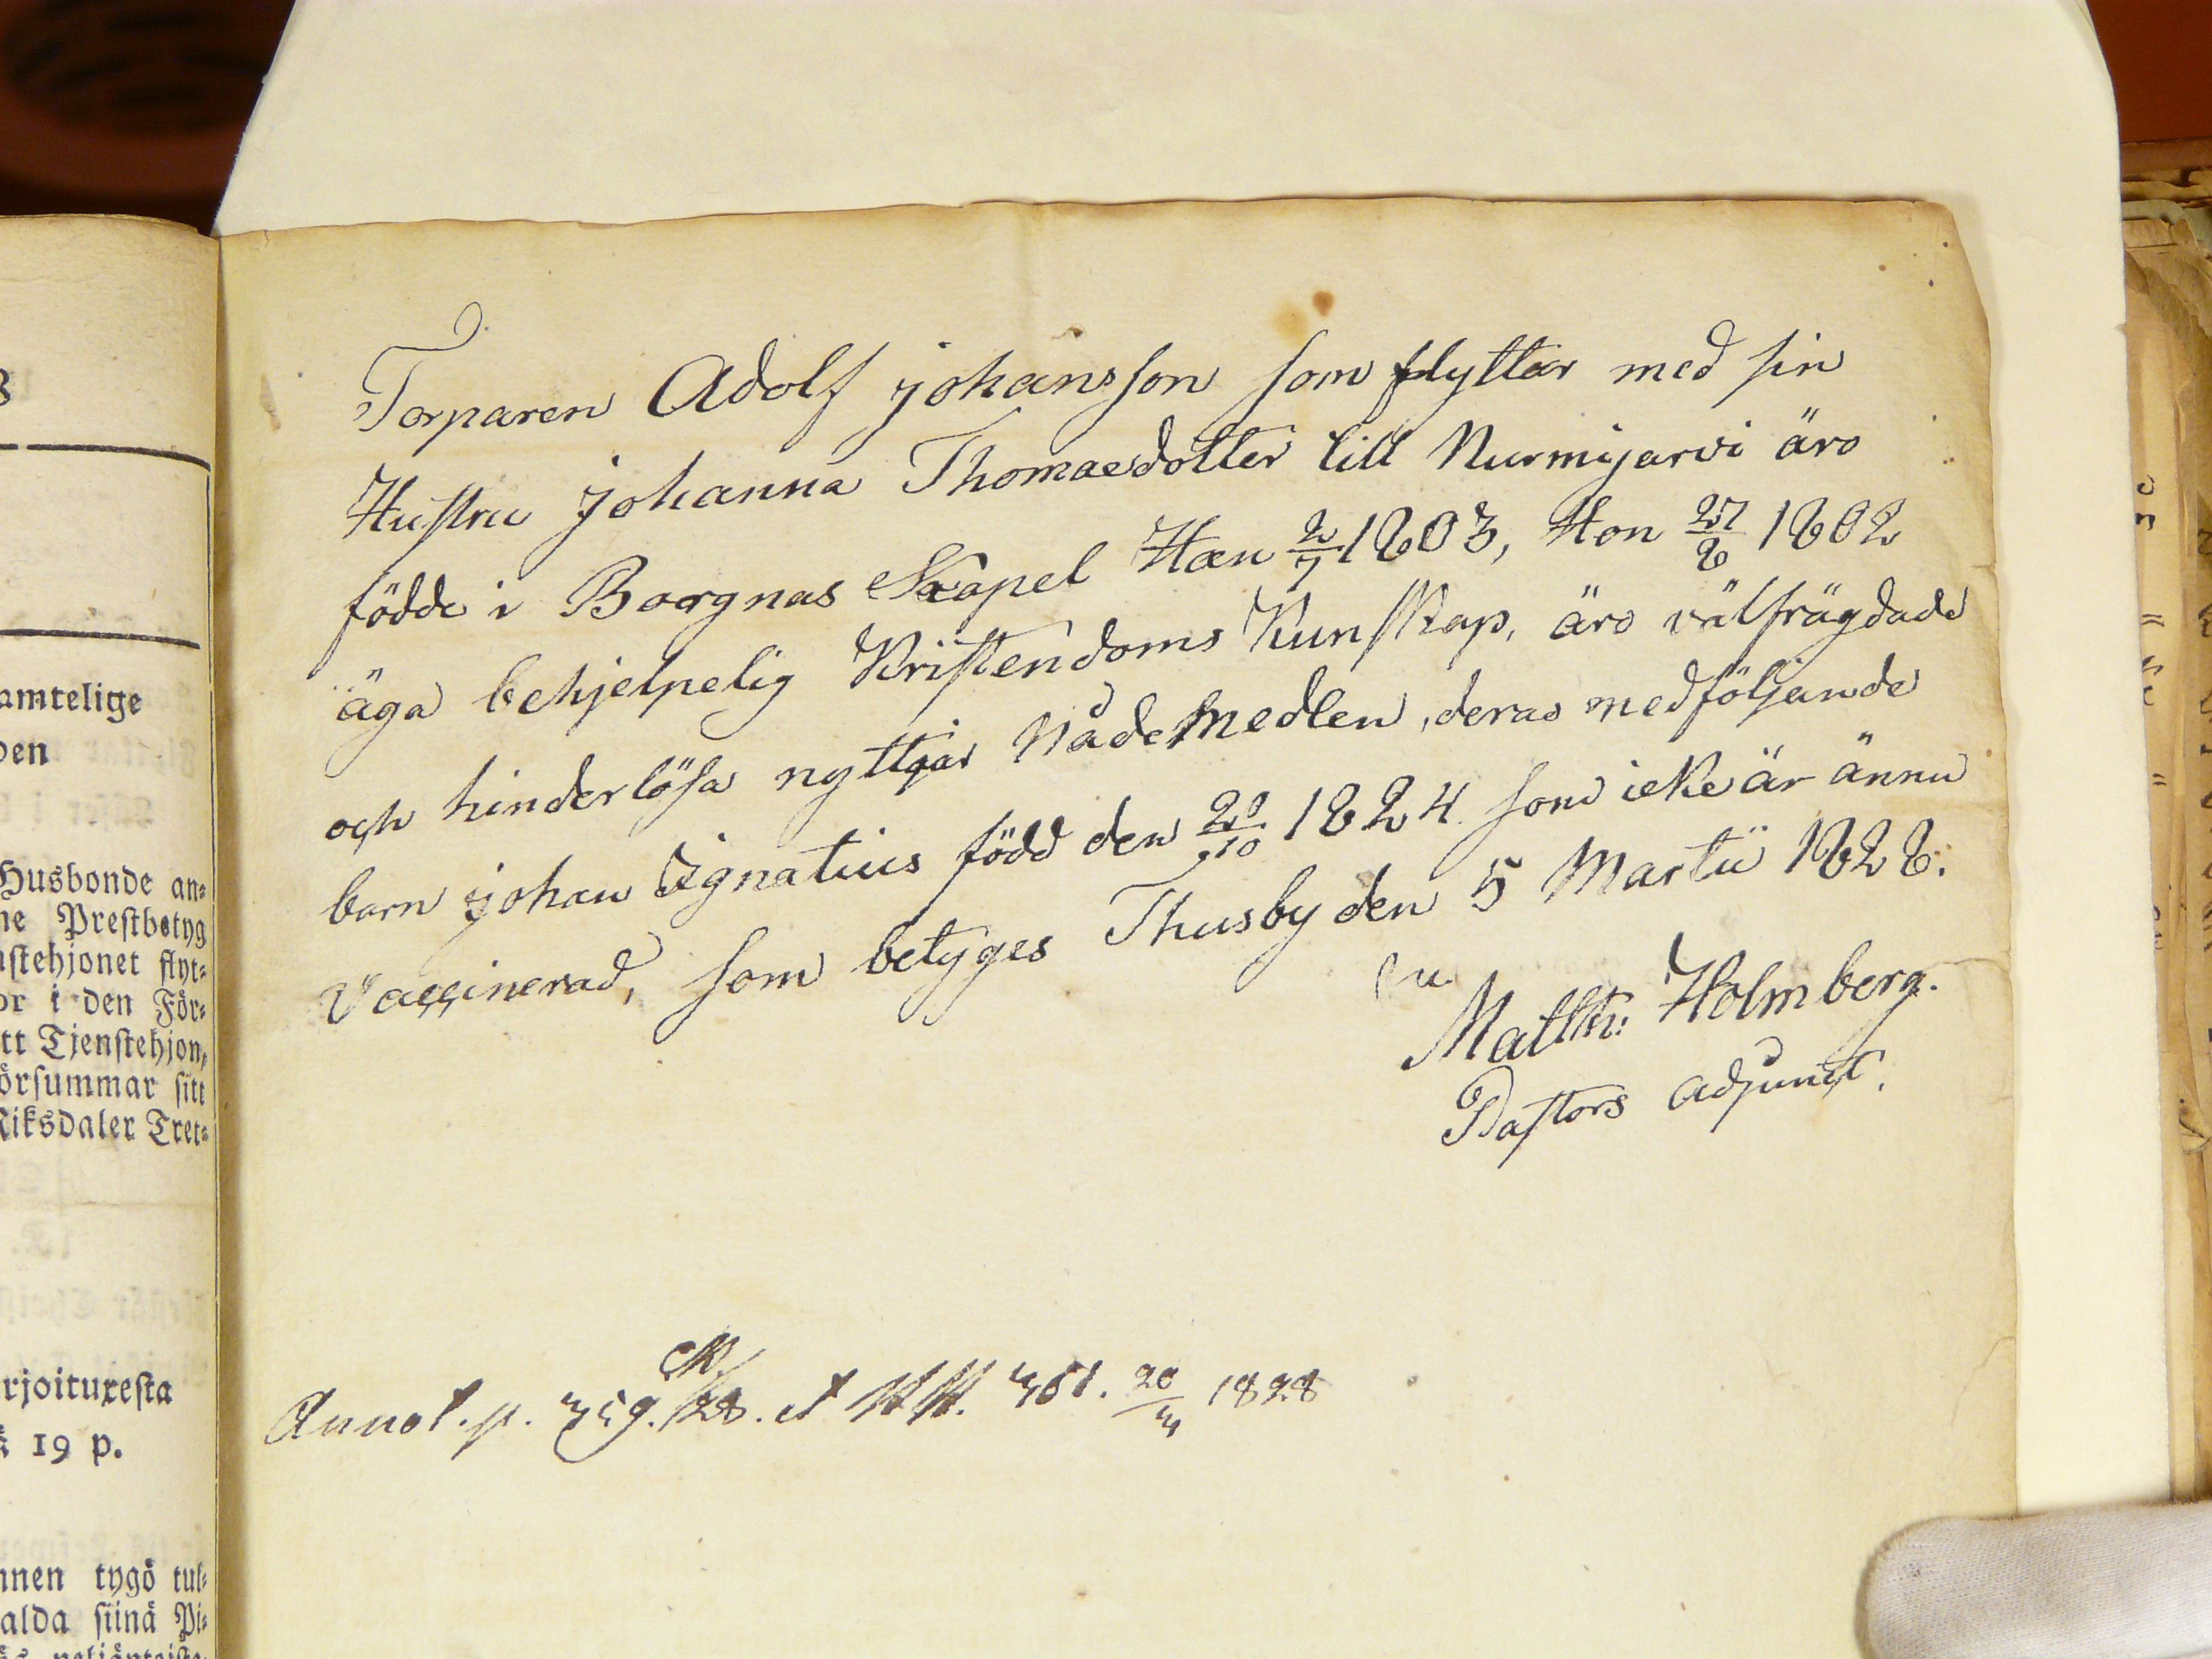 amtelige
den
Husbonde an=
ne Prestbetyg
nstehjonet flyt=
or i den För=
tt Tjenstehjon,
örsummar sitt
Riksdaler Tret=
rjoituxesta
19 p.
nnen tygö tul=
alda siinä Pi=
Torparen Adolf johansson som flyttar med sin
Hustru johanna Thomaedotter till Nurmijarvi äro
födde i Borgnas Kapel Han 2/7 1803, Hon 27/8 1802
äga behjelpelig Kristendoms Kunskap, äro välfrägdade
och hinderlösa nyttjar Nådemedlen, deras medföljande
barn johan Ignatius född den 20/10 1824 som icke är ännu
Vaccinerad, som betyges Thusby den 5 Martii 1828.
Matth: Holmberg.
Pastors adjunct.
Annot. p. 359. 28. et 361. 20/3 1828